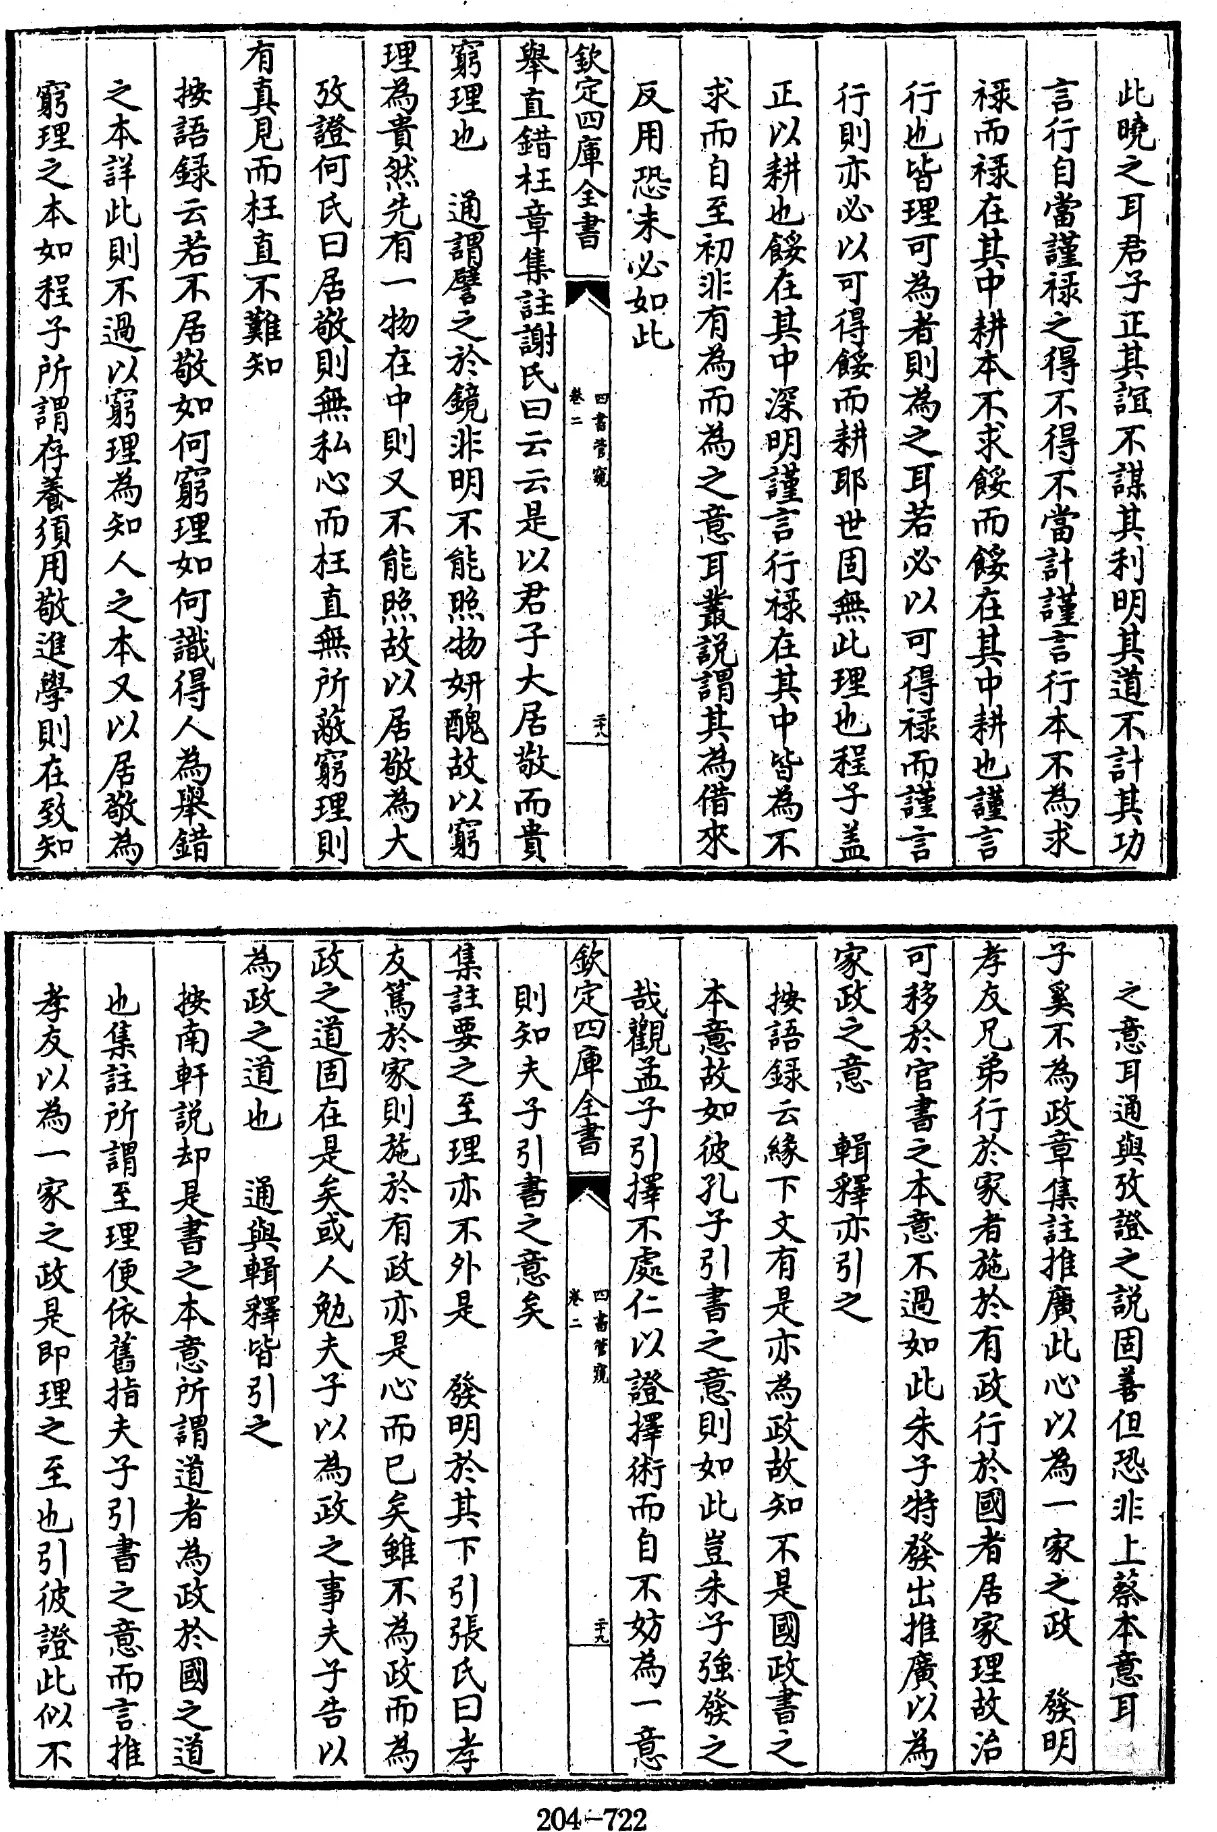 此曉之耳君子正其誼不謀其利明其道不計其功
言行自當謹祿之得不得不當計謹言行本不為求
祿而祿在其中耕本不求餒而餒在其中耕也謹言
行也皆理可為者則為之耳若必以可得祿而謹言
行則亦必以可得餒而耕耶世固無此理也程子盖
正以耕也餒在其中深明謹言行祿在其中皆為不
求而自至初非有為而為之意耳叢説謂其為借來
反用恐未必如此
欽定四庫全書
四書管窺
卷二
二十八
舉直錯枉章集註謝氏曰云云是以君子大居敬而貴
窮理也 通謂譬之於鏡非明不能照物妍醜故以窮
理為貴然先有一物在中則又不能照故以居敬為大
攷證何氏曰居敬則無私心而枉直無所蔽窮理則
有真見而枉直不難知
按語録云若不居敬如何窮理如何識得人為舉錯
之本詳此則不過以窮理為知人之本又以居敬為
窮理之本如程子所謂存養須用敬進學則在致知
之意耳通與攷證之説固善但恐非上蔡本意耳
子奚不為政章集註推廣此心以為一家之政 發明
孝友兄弟行於家者施於有政行於國者居家理故治
可移於官書之本意不過如此朱子特發出推廣以為
家政之意 輯釋亦引之
按語録云緣下文有是亦為政故知不是國政書之
本意故如彼孔子引書之意則如此豈朱子強發之
哉觀孟子引擇不處仁以證擇術而自不妨為一意
欽定四庫全書
四書管窺
卷二
二十九
則知夫子引書之意矣
集註要之至理亦不外是 發明於其下引張氏曰孝
友篤於家則施於有政亦是心而已矣雖不為政而為
政之道固在是矣或人勉夫子以為政之事夫子告以
為政之道也 通與輯釋皆引之
按南軒説却是書之本意所謂道者為政於國之道
也集註所謂至理便依舊指夫子引書之意而言推
孝友以為一家之政是即理之至也引彼證此似不
204-722